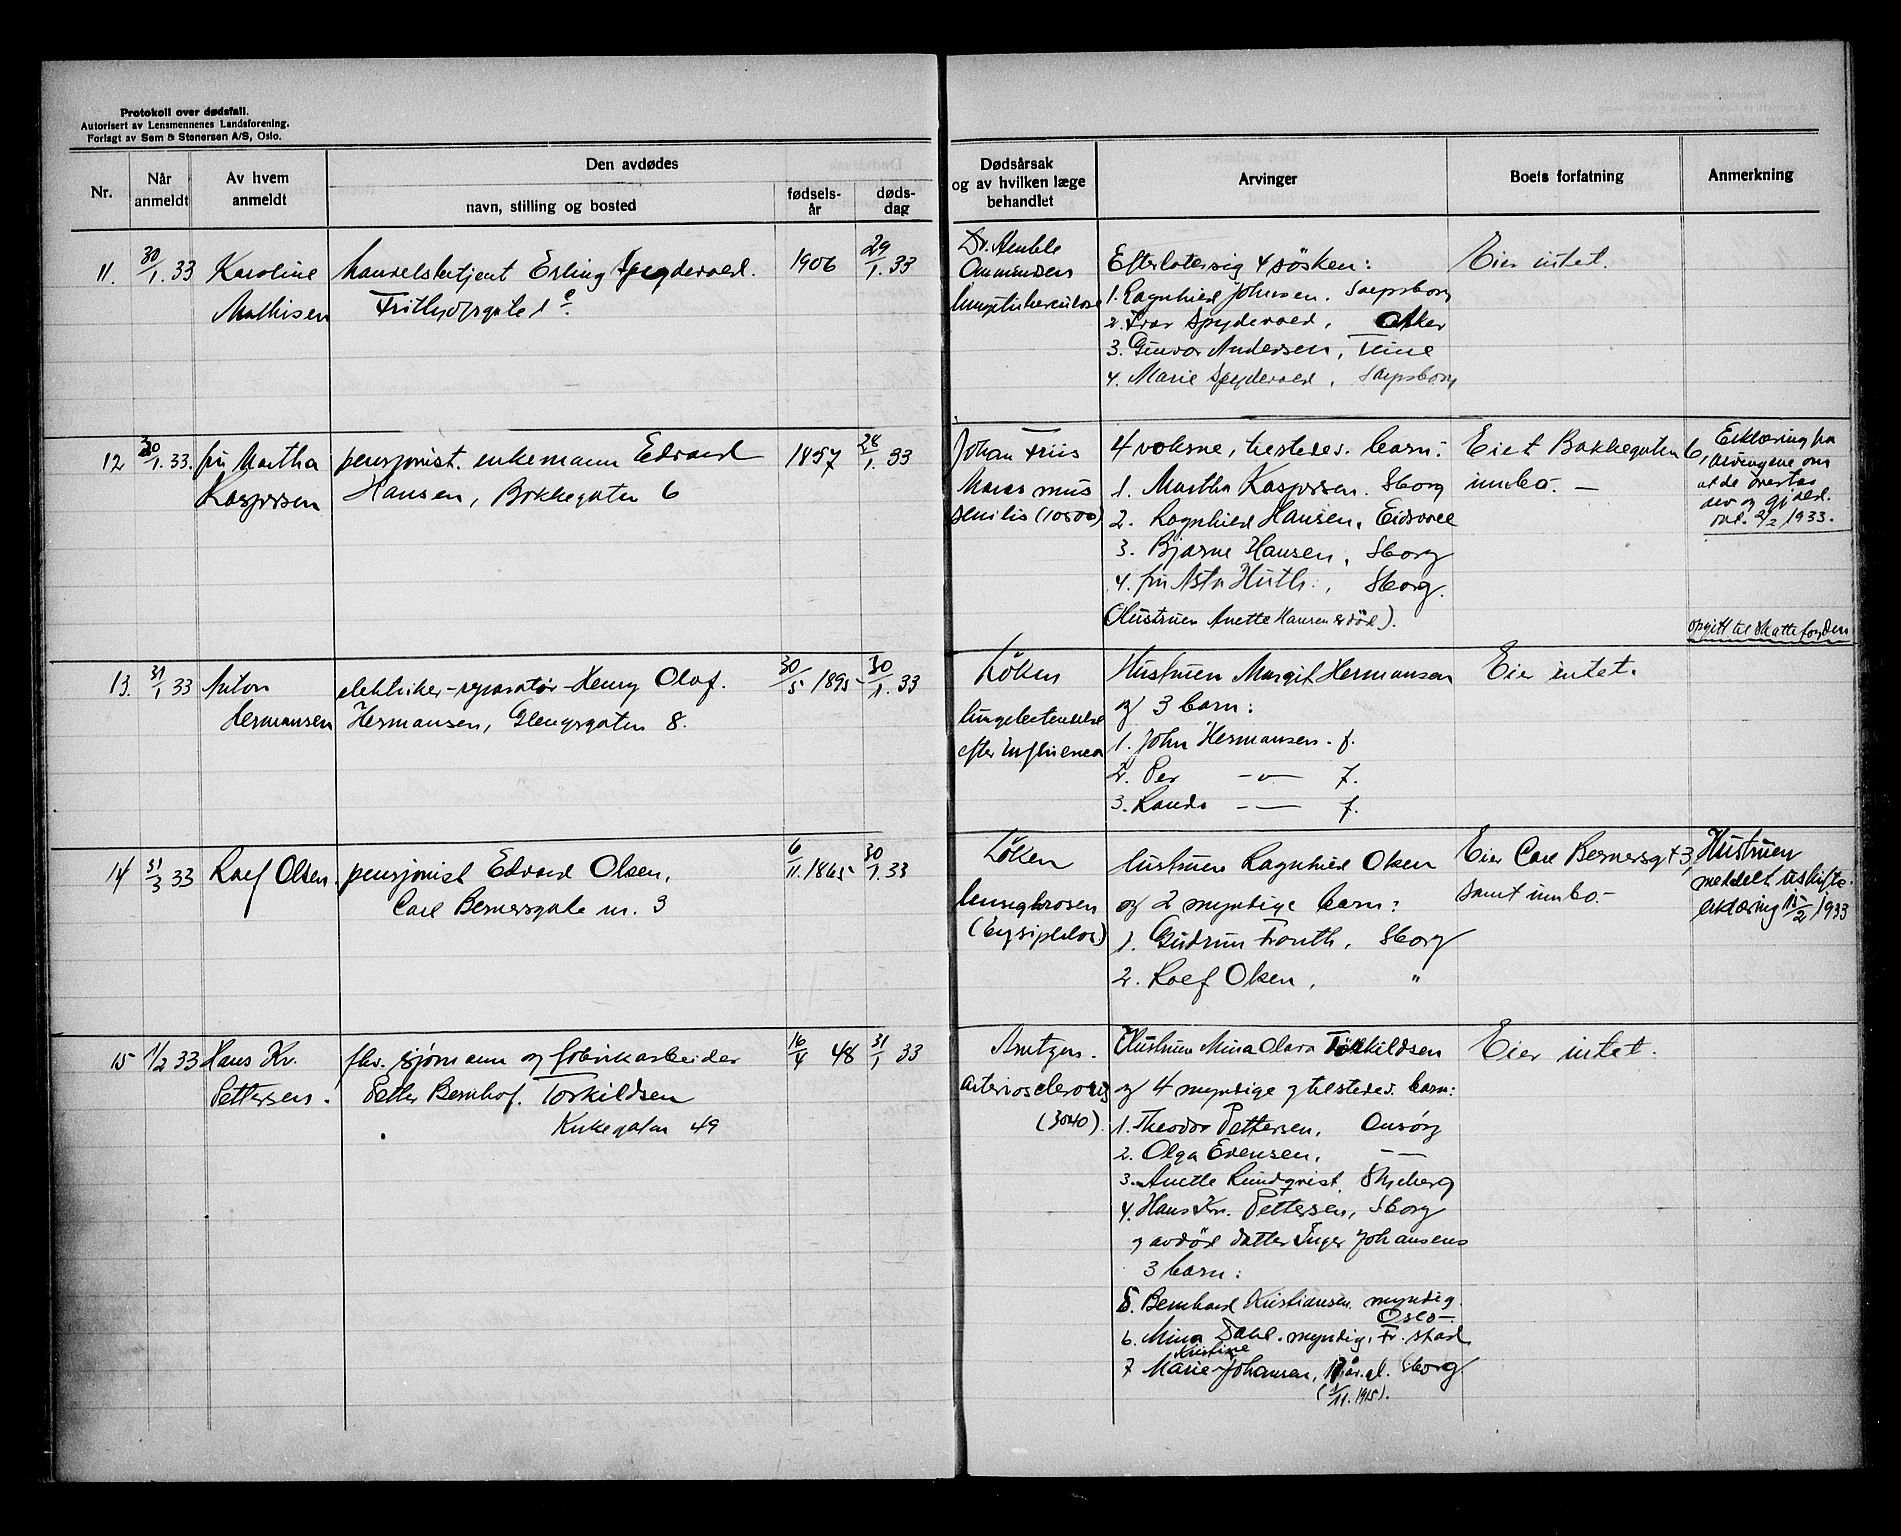 Protokoll over dødsfall.
Autorisert av Lensmennenes Landsforening.
Forlagt av Sem & Stenersen A/S, Oslo.
Nr.
Når anmeldt
Av hvem anmeldt
Den avdødes
navn, stilling og bosted
fødsels-år
døds-dag
Dødsårsak og av hvilken læge behandlet
Arvinger
Boets forfatning
Anmerkning
11. 30/1. 33 Karoline Mathisen
Erling Spydevold.
1906
29/1. 33
Dr.
Efterlater sig 4 søsken:
1. Ragnhild Johnsen. Sarpsborg
2. Ivar Spydevold,
3. Gunvor Andersen, Tune
4. Marie Spydevold, Sarpsborg
Eier intet.
12 30/1. 33. fru Martha Kaspersen
pensjonist. enkemann Edvard
Hansen, Bakkegaten 6
1857
28/1. 33
Johan Friis
Marasmus
senilis (10500)
4 voksne, tilstedev. barn:
1. Martha Kaspersen. Sborg
2. Ragnhild Hansen, Eidsvoll
3. Bjarne Hansen, Sborg
4. fru Asta Huth., Sborg.
(Hustruen Anette Hansen er død).
Eiet Bakkegaten 6,
innbo. —
Erklæring fra
arvingene om
at de overtar
arv og gjæld.
2/2 1933.
opgitt til skattefogden
13. 31/1 33 Anton Hermansen
elektriker-reparatør Henry Olaf.
Hermansen, Glengsgaten 8.
30/5 1895
30/1. 33
Løken
lungebetendelse
efter influensa
Hustruen Margit Hermansen
og 3 barn:
1. John Hermansen. f.
2. Per —"— f.
3. Randi — — f.
Eier intet.
14 31/3 33 Roef Olsen.
pensjonist Edvard Olsen,
Carl Bernersgate nr. 3
6/11. 1865
30/1. 33
Løken
Hustruen Ragnhild Olsen
og 2 myndige barn:
1. Gudrun Fronth, Sborg
2. Roef Olsen, "
Eier Carl Bernersgt 3,
samt innbo.-
Hustruen
meddelt uskifte-
erklæring 15/2 1933
15 1/2 33 Hans Kr. Pettersen.
fhv. sjømann og fabrikarbeider
Petter Bernhof. Torkildsen
Kirkegaten 49
16/4 48
31/1 33
Arntzen.
Arteriosclerosis
(3040).
Hustruen Mina Olava Torkildsen
og 4 myndige og tilstedev. barn:
1. Theodor Pettersen,
2. Olga Evensen, — —
3. Anette Lundqvist, Skjeberg
4. Hans Kr. Pettersen, Sborg
og avdød datter Inger Johansens
3 barn:
5. Bernhard Kristiansen, myndig.
Oslo—
6. Mina Dahl. myndig, Fr.stad
Kristine
7 Marie Johansen, 17 år. gl. Sborg.
(1/11. 1915).
Eier intet.